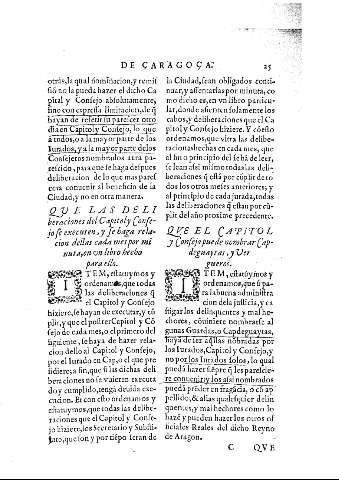 DE ÇARAGOÇA. 25
otrās, la qual nominacion, y remis
sió no la pueda hazer el dicho Ca
pitol y Consejo absolutamente,
sino con expressa limitacion, de q̃
hayan de referir su parescer otro
dia en Capitol y Consejo, lo que
à todos, o a la mayor parte de los
Iurados, y a la mayor parte de los
Consejeros nombrados atra pa-
rescido, para que se haga despues
deliberacion de lo que mas pares
cera conuenir al beneficio de la
Ciudad, y no en otra manera.
QVE LAS DELI
beraciones del Capitol y Conse-
jo se executen, y se haga rela-
cion dellas cada mes por mi
nuta, en vn libro hecho
para ello.
ITEM, estatuymos y
ordenamos, que todas
las deliberaciones q̃
el Capitol y Consejo
hiziere, se hayan de executar, y cō
plir, y que el postrer Capitol y Cō
sejo de cada mes, o el primero del
siguiente, se haya de hazer rela-
cion dello al Capitol y Consejo,
por el Iurado en Cap, o el que pre
sidiere; a fin, que si las dichas deli
beraciones no se vuieren executa
do y cumplido, tenga deuida exe-
cucion. Et con esto ordenamos y
estatuymos, que todas las delibe-
raciones que el Capitol y Conse-
jo hiziere, los Secretario y Substi-
tuto, que son y por tiēpo seran de
la Ciudad, sean obligados conti-
nuar, y assentarlas por minuta, co
mo dicho es, en vn libro particu-
lar, donde assienten solamente los
cabos, y deliberaciones que el Ca
pitol y Consejo hiziere. Y cō esto
ordenamos, que vltra las delibera-
ciones hechas en cada mes, que
al fin o principio del se hā de leer,
se lean assi mismo todas las deli-
beraciones q̃ està por cūplir de to
dos los otros meses anteriores; y
al principio de cada jurada, todas
las deliberaciones q̃ estan por cū
plir del año proxime precedente.
QVE EL CAPITOL
y Consejo puede nombrar Cap-
deguaytas, y Ver
gueros.
ITEM, estatuimos y
ordenamos, que si pa
ra la buena administra
cion de la justicia, y ca
stigar los delinquentes y mal he-
chores, cōuiniere nombrarse al
gunas Guardas, o Capdeguaytas,
haya de ser aq̃llas nōbradas por
los Iurados, Capitol y Consejo, y
no por los Iurados solos, lo qual
pueda hazer siēpre q̃ les parescie-
re conuenir; y los assi nombrados
pueda prēder en fragācia, o cō ap
pellido, & alias qualesquier delin
quentes, y mal hechores como lo
hazē y pueden hazer los otros of
ficiales Reales del dicho Reyno
de Aragon.
C QVE